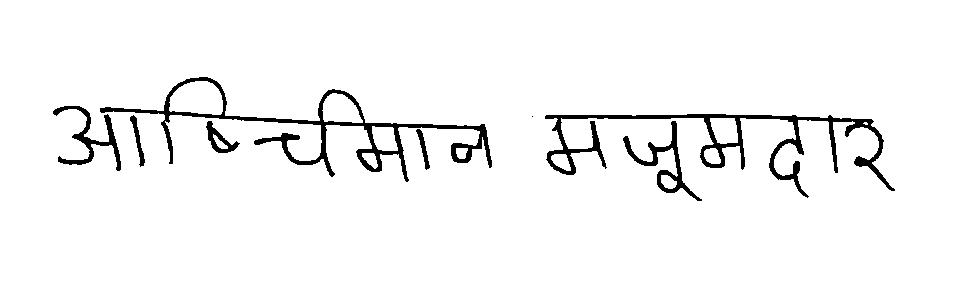 आषिर्चमान मजूमदार